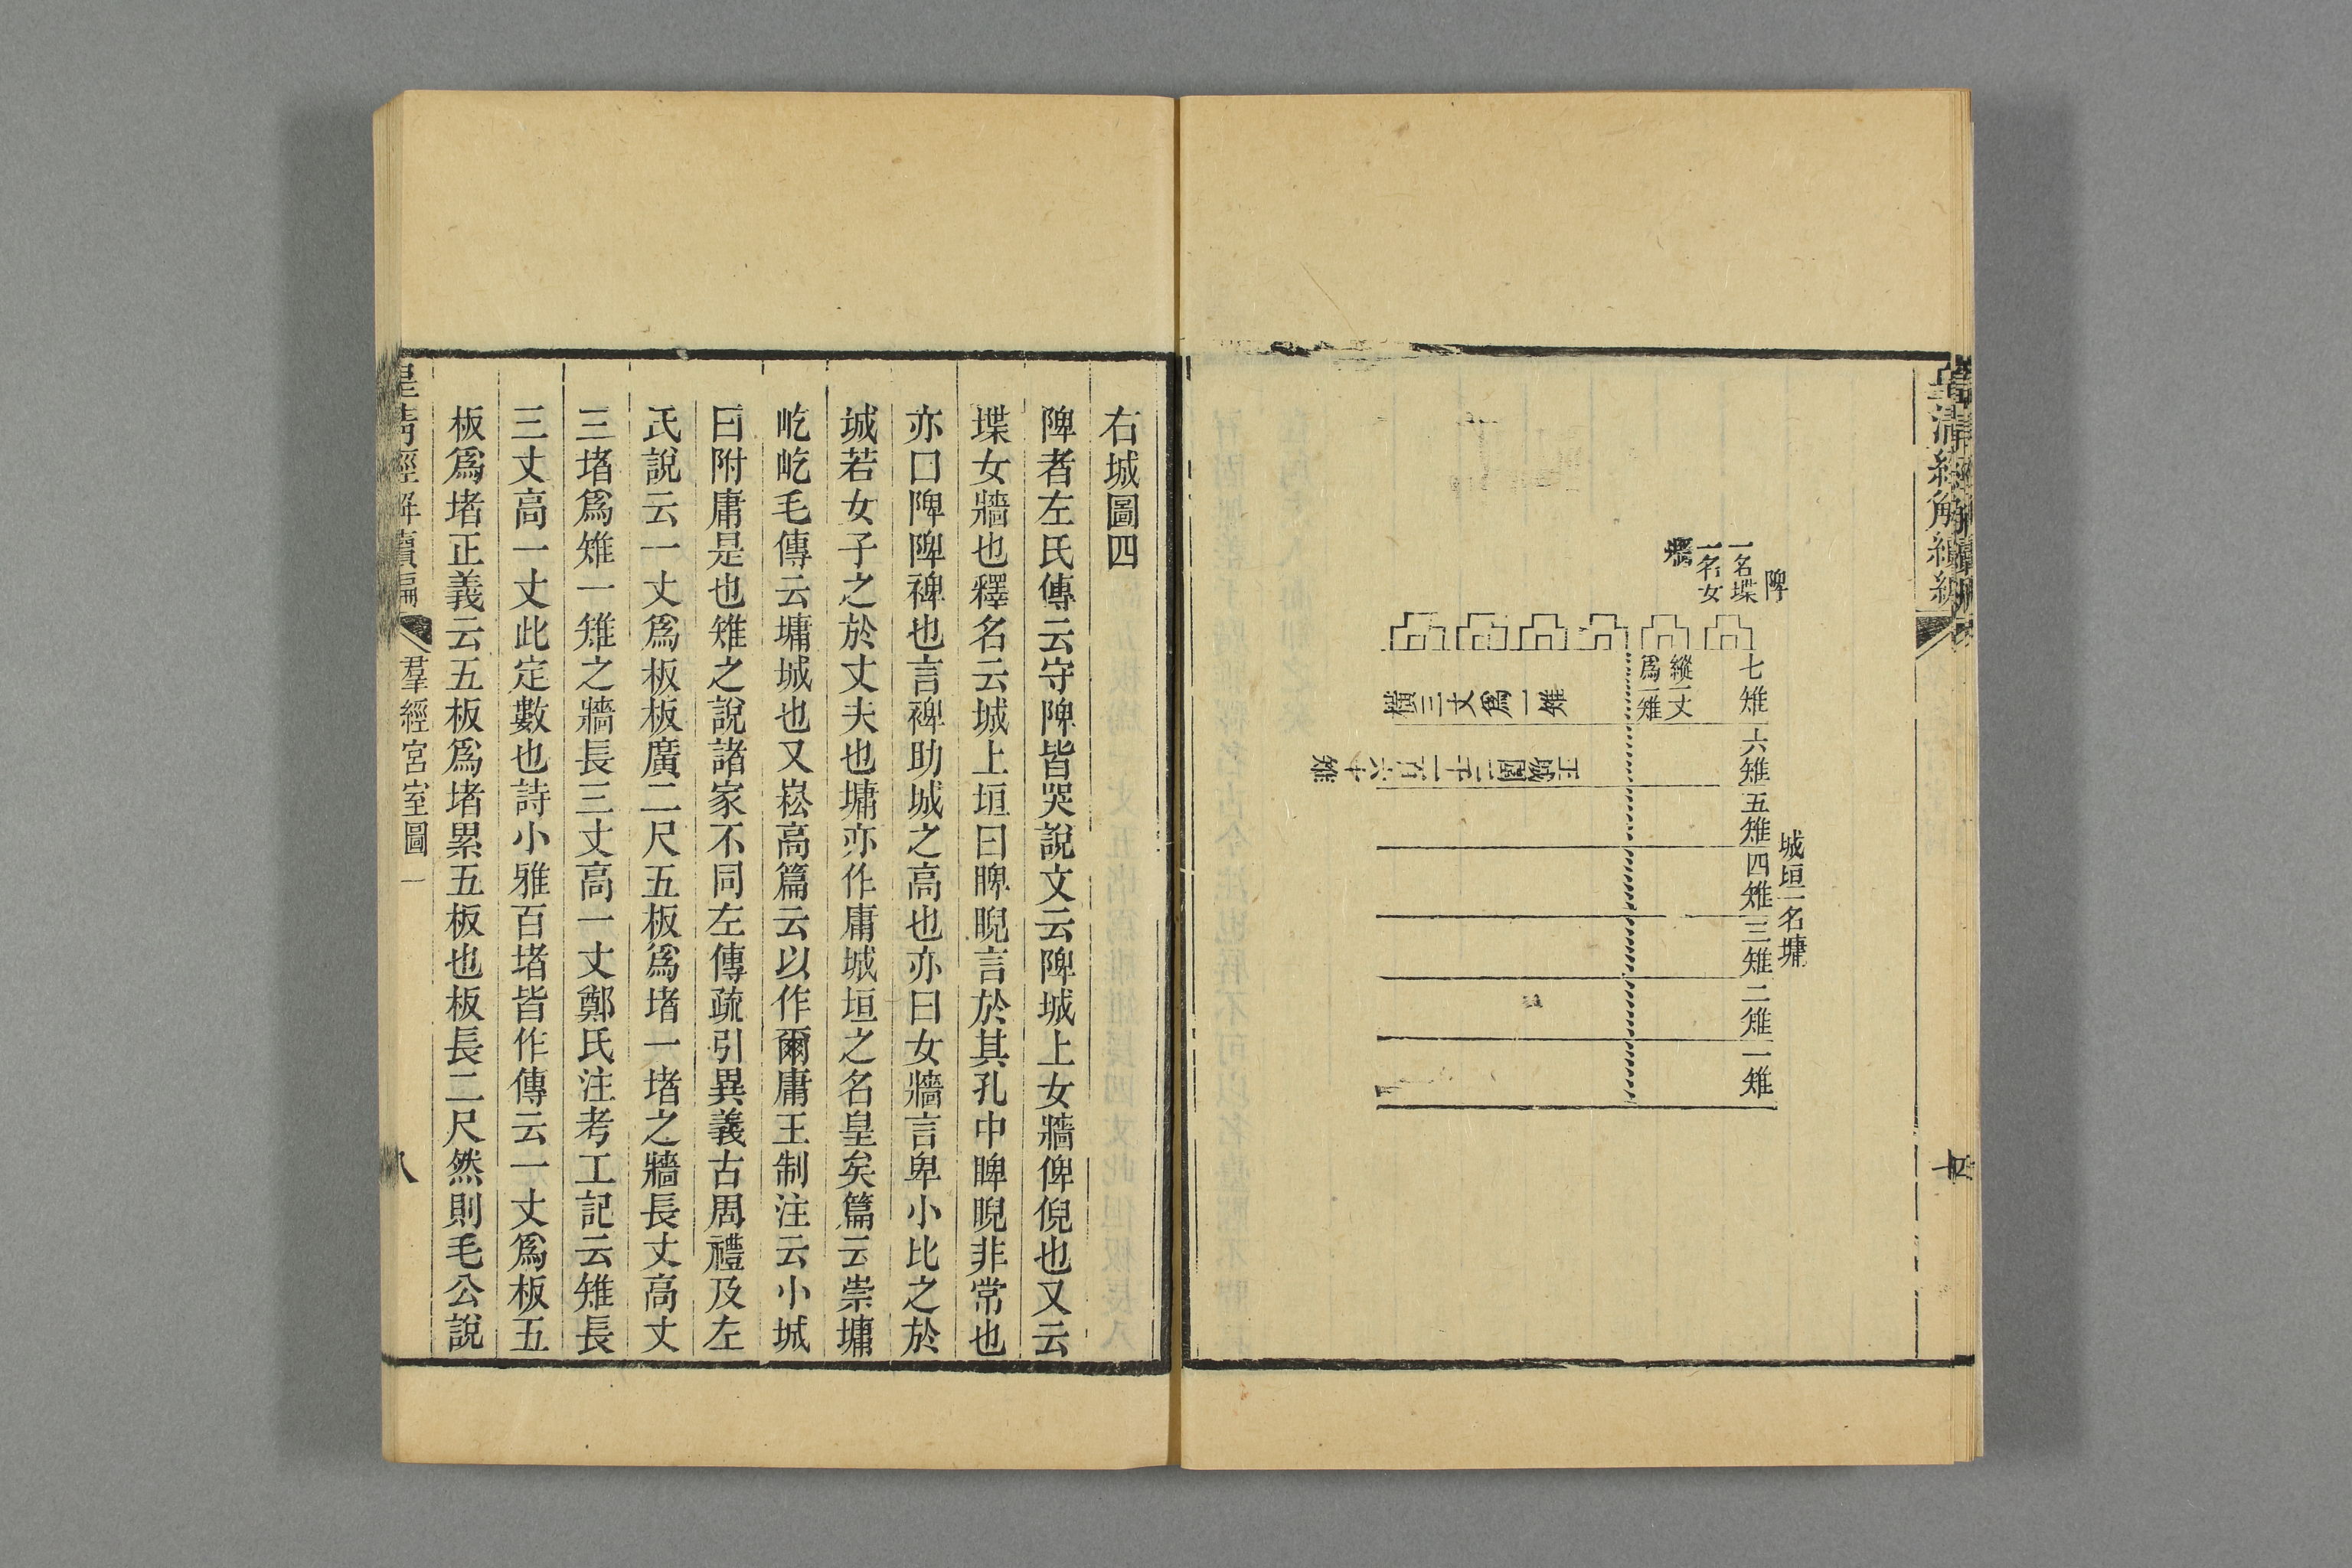 皇清經解續編
陴
一名堞
一名女
牆
七雉
六雉
五雉
四雉
三雉
二雉
一雉
城垣一名墉
縱一丈
爲一雉
橫三丈爲一雉
正城圍二千一百六十
雉
右城圖四
陴者左氏傳云守陴皆哭說文云陴城上女牆俾倪也又云
堞女牆也釋名云城上垣曰睥睨言於其孔中睥睨非常也
亦口陴陴裨也言裨助城之高也亦曰女牆言卑小比之於
城若女子之於丈夫也墉亦作庸城垣之名皇矣篇云崇墉
屹屹毛傳云墉城也又崧高篇云以作爾庸王制注云小城
曰附庸是也雉之說諸家不同左傳疏引異義古周禮及左
氏說云一丈爲板板廣二尺五板爲堵一堵之牆長丈高丈
三堵爲雉一雉之牆長三丈高一丈鄭氏注考工記云雉長
三丈高一丈此定數也詩小雅百堵皆作傳云一丈爲板五
板爲堵正義云五板爲堵累五板也板長二尺然則毛公說
皇清經解續編
羣經宮室圖一
八